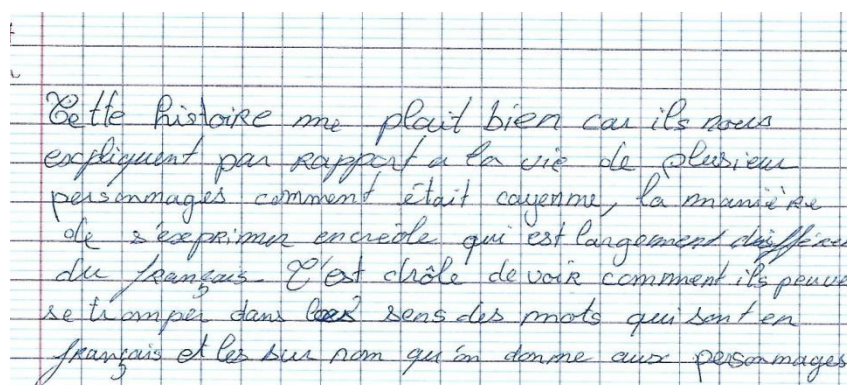 Cette histoire me plait bien car ils nous
expliquent par rapport a la vie de plusieur
personnages comment était cayenne, la manière
de s'exprimer encréole qui est largement différen
du français. C'est drôle de voir comment ils peuve
se tromper dans les sens des mots qui sont en
français et les sur nom qu'on donne aux personnages